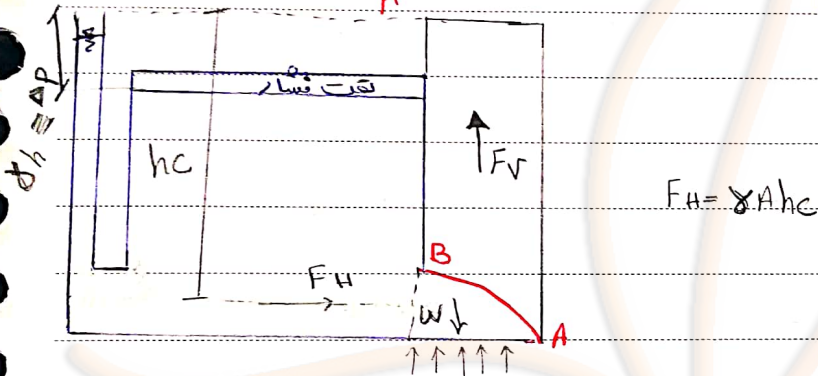 γh = ΔP
تحت فشار
hc
Fv
FH = γAhc
B
FH
W
A